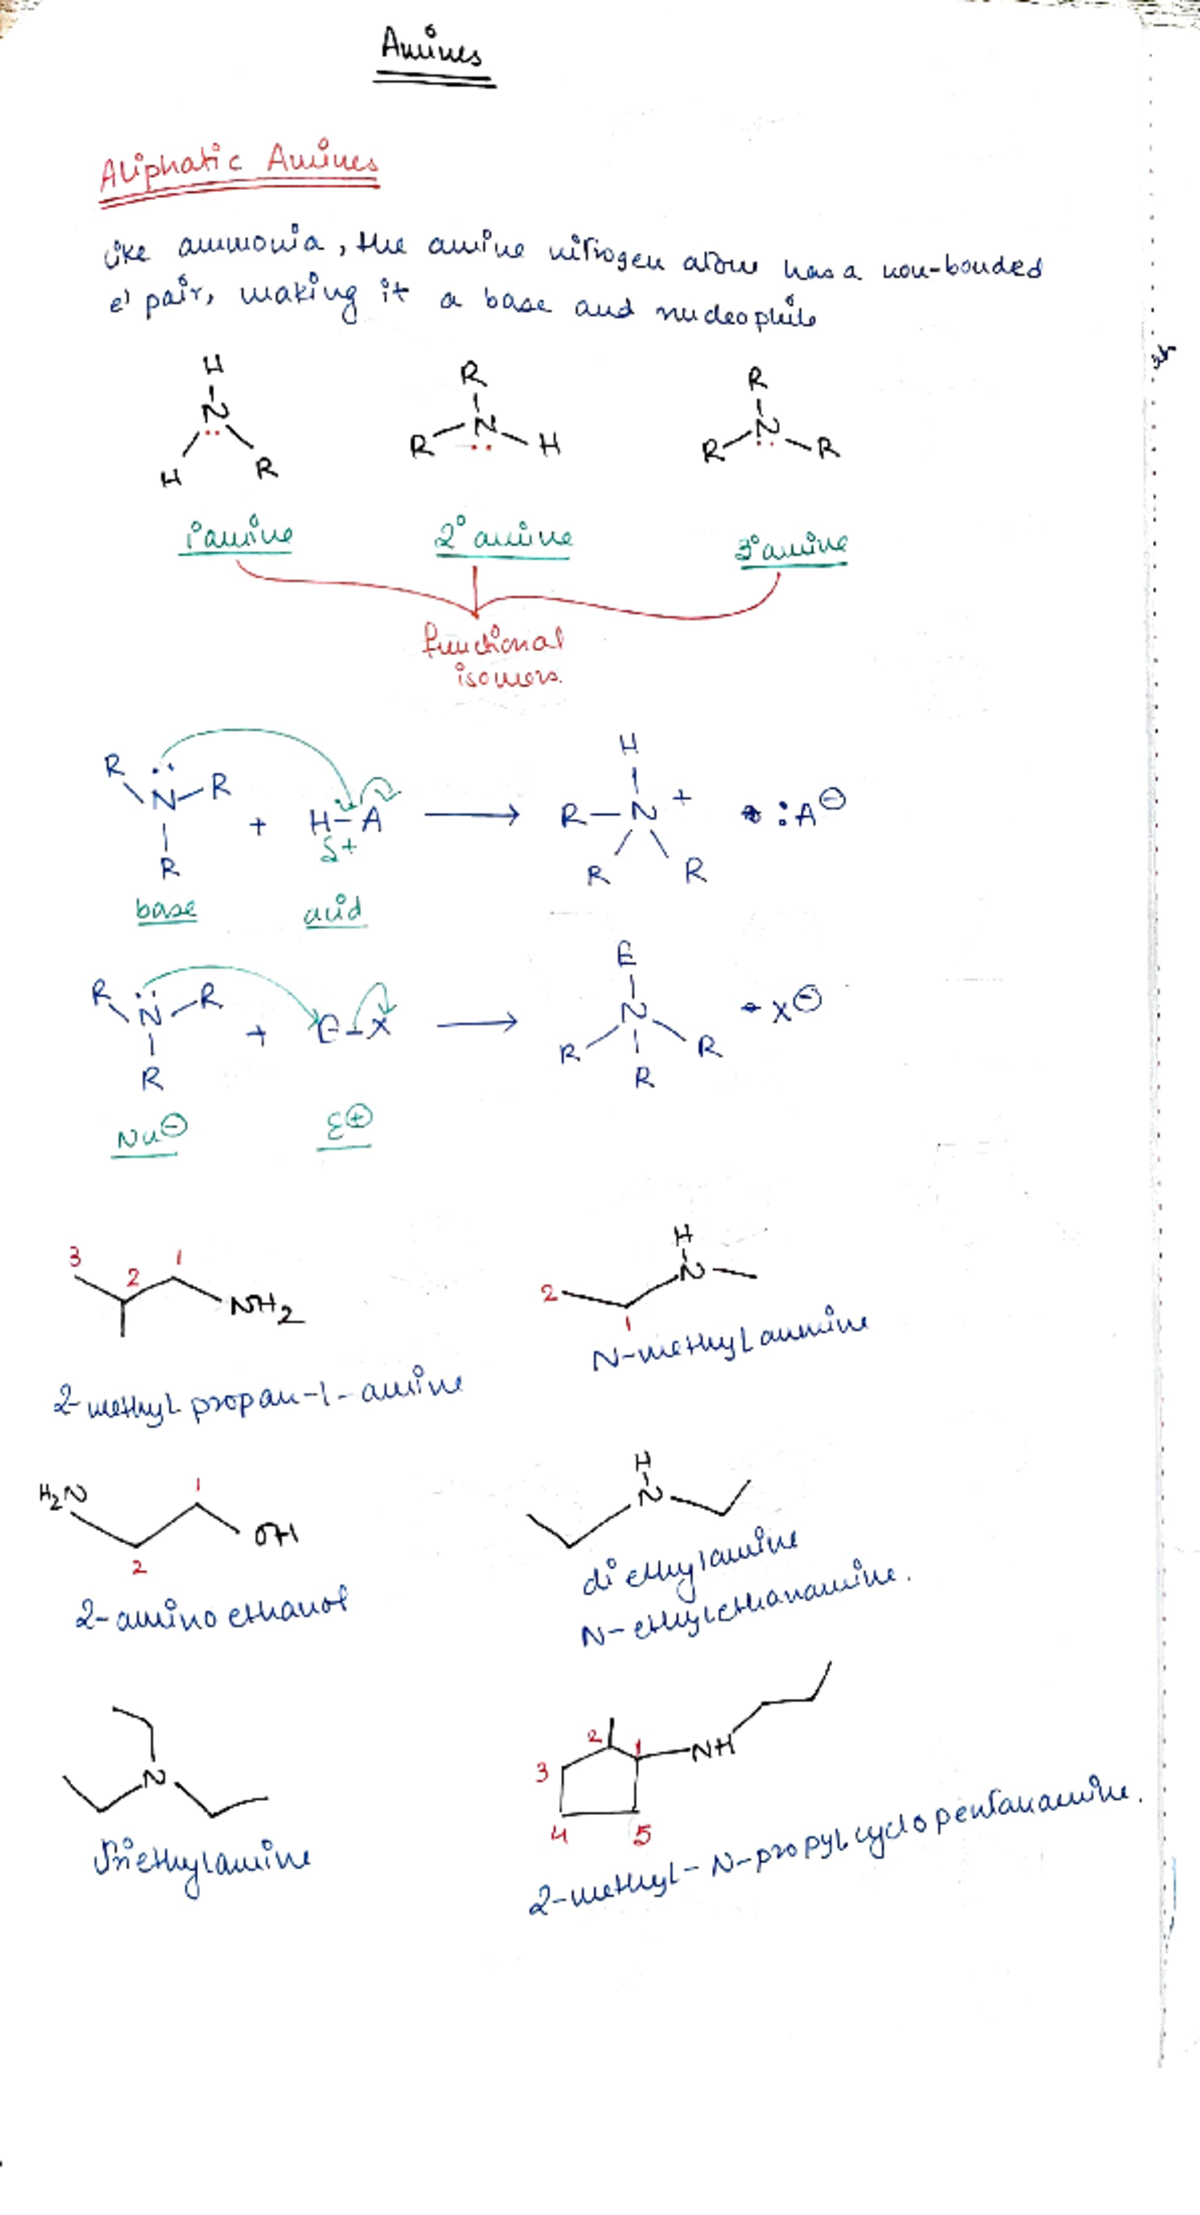 Amines
Aliphatic Amines
like ammonia, the amine nitrogen atom has a non-bonded
e⁻ pair, making it a base and nucleophile
H R R
N N N
H R R H R R
1° amine 2° amine 3° amine
functional
isomers.
R N R + H-A → H R-N + :A⊖
R δ+ R R
base acid
R N R + E-X → E N X⊖
R R R R
Nu⊖ E⊕
3 2 1 NH2
H N 2 1
2-methyl propan-1-amine
N-methyl anmine
H2N 1 2 OH
H N
2-amino ethanol
diethylamine
N-ethylethanamine.
N
2 1 NH 3 4 5
Triethylamine
2-methyl-N-propyl cyclopentanamine.